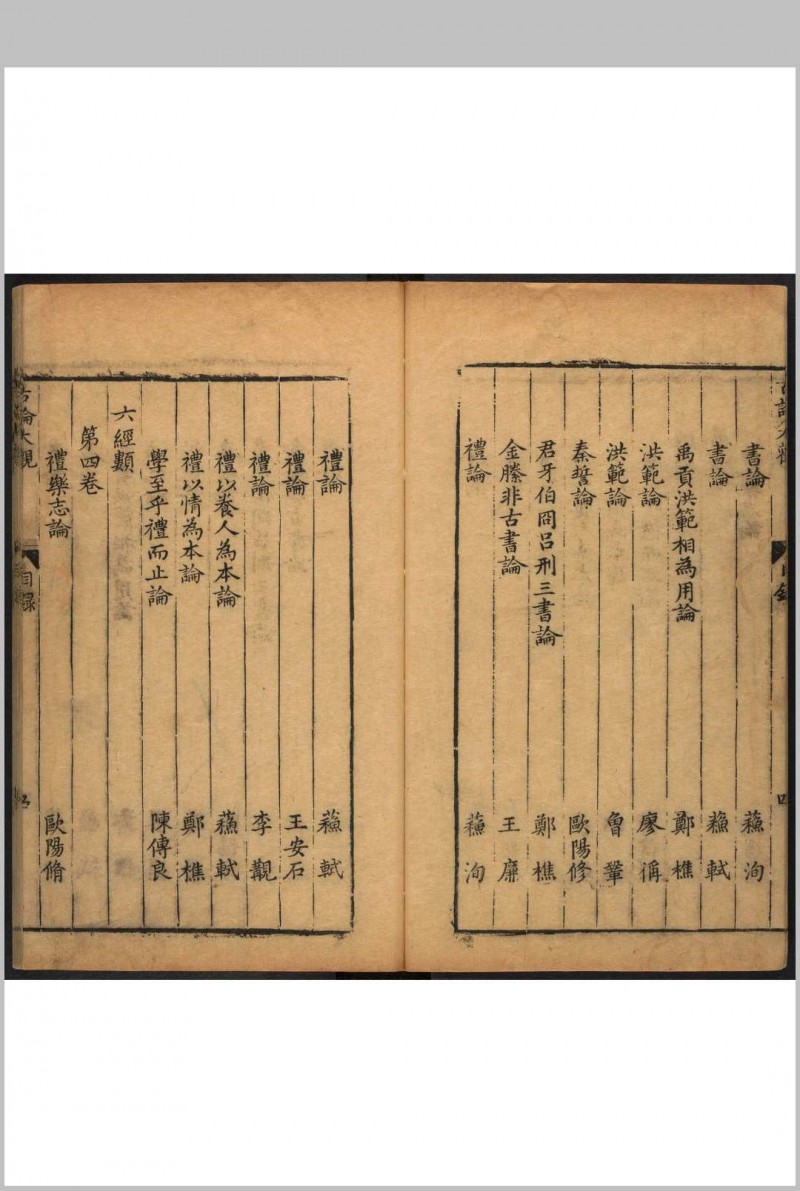 書論 蘓洵
書論 蘓軾
禹貢洪範相為用論 鄭樵
洪範論 廖偁
洪範論 曾鞏
秦誓論 歐陽修
君牙伯冏呂刑三書論 鄭樵
金縢非古書論 王廉
禮論 蘓洵
禮論 蘓軾
禮論 王安石
禮論 李覯
禮以養人為本論 蘓軾
禮以情為本論 鄭樵
學至乎禮而止論 陳傅良
六經類
第四卷
禮樂志論 歐陽脩
古論大觀 目錄